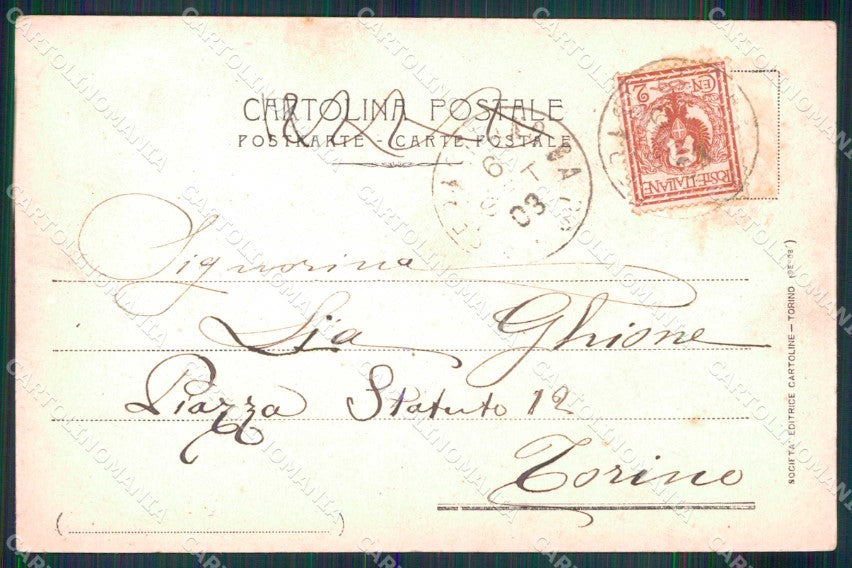 CARTOLINA POSTALE
POSTKARTE - CARTE POSTALE
CEN. 2
POSTE ITALIANE
6
03
Signorina
Lia Ghione
Piazza Statuto 12
Torino
SOCIETA' EDITRICE CARTOLINE — TORINO
CARTOLINOMANIA